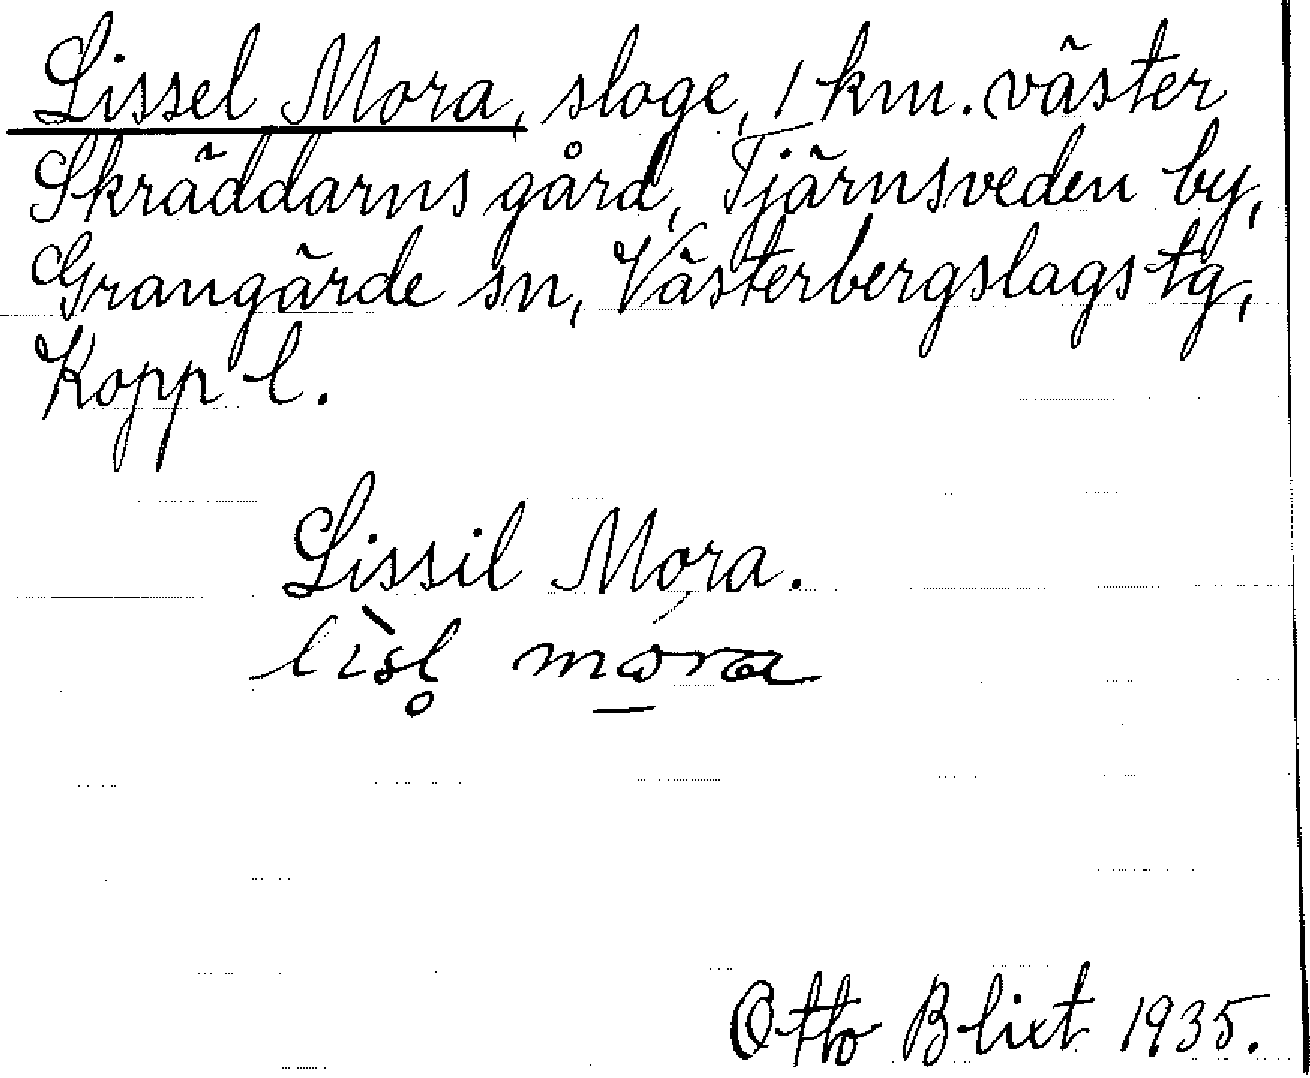 Lissel Mora, sloge, 1 km. väster
Skräddarns gård, Tjärnsveden by,
Grangärde sn, Västerbergslags tg,
Kopp l.
Lissil Mora.
lìsl̥ móra
Otto Blixt 1935.